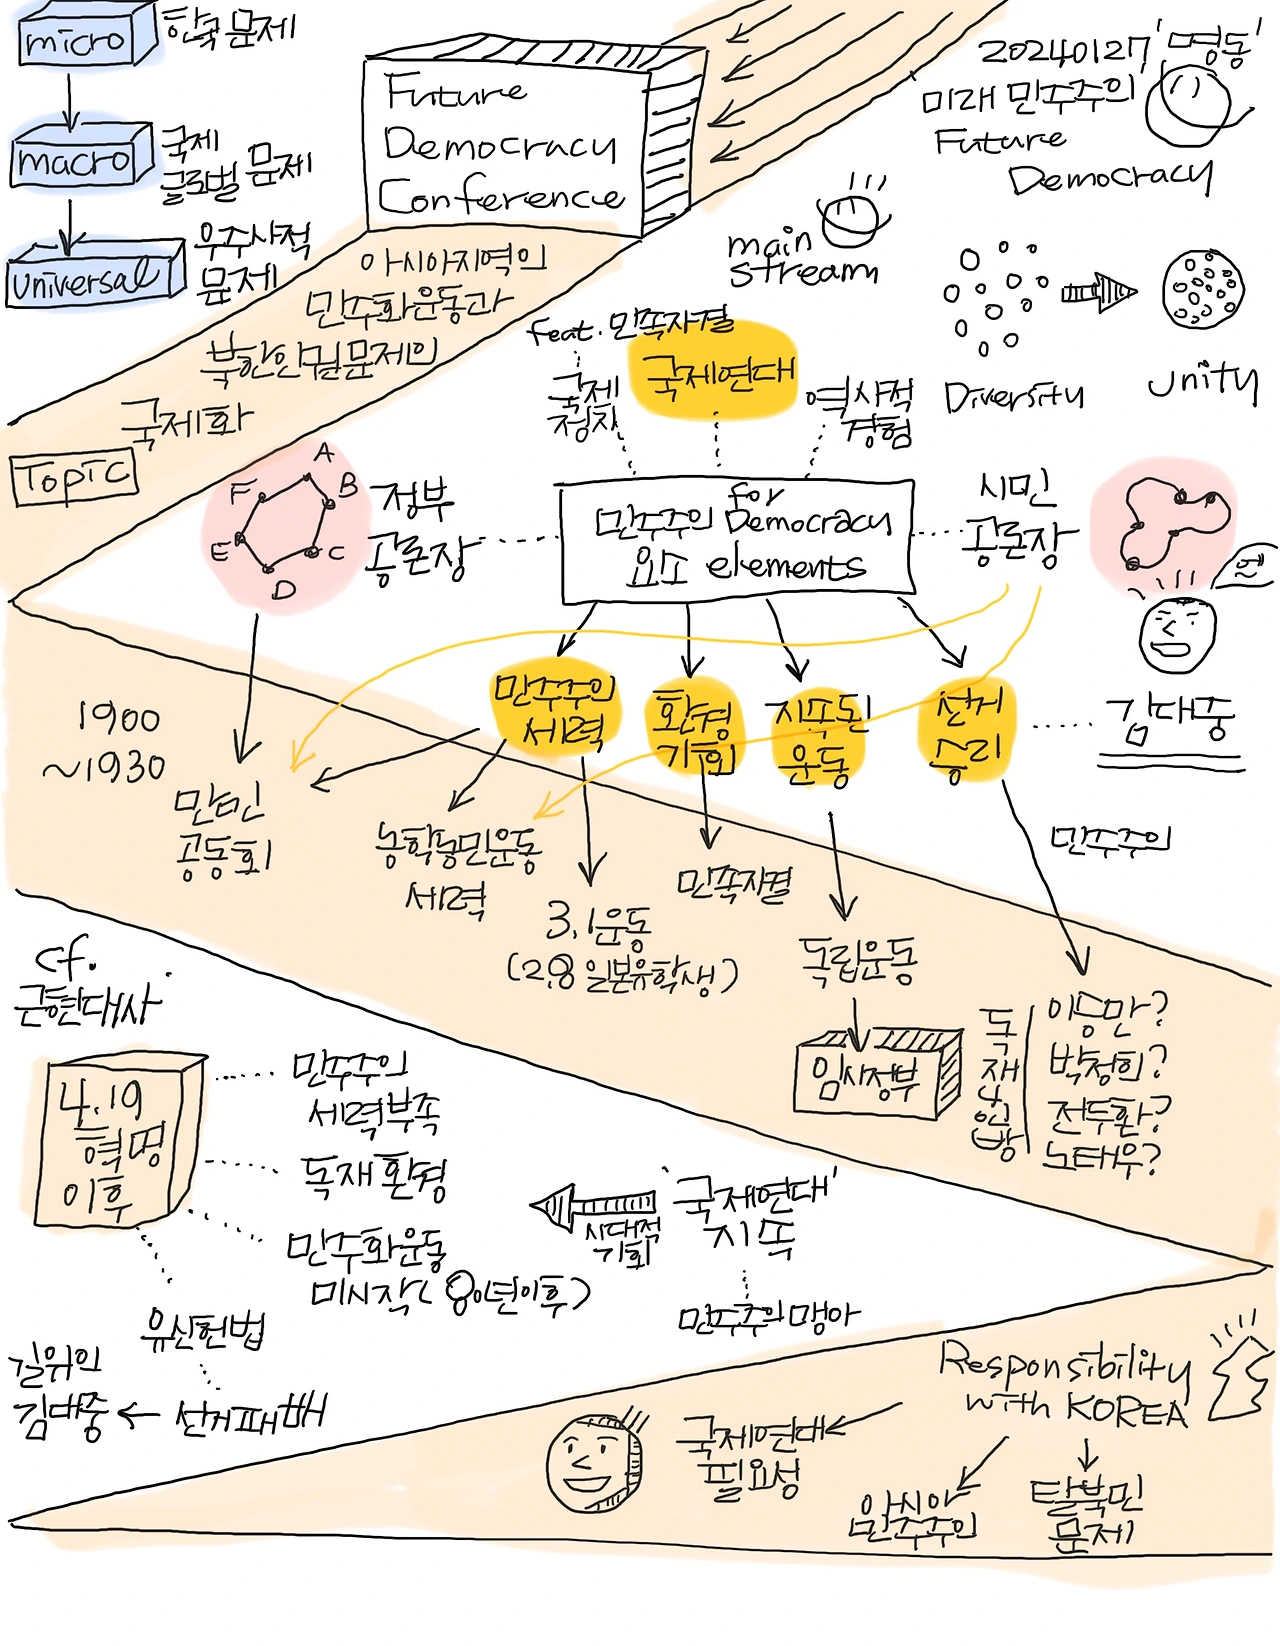 micro
한국 문제
macro
국제
글로벌 문제
universal
우주사적
문제
Future
Democracy
Conference
20240127 '명동'
미래 민주주의
Future
Democracy
main
stream
Diversity
Unity
아시아지역의
민주화운동과
북한인권문제의
국제화
TopIC
feat. 민족자결
국제연대
국제
정치
역사적
경험
A
B
C
D
E
F
정부
공론장
for
민주주의 Democracy
요소 elements
시민
공론장
엔
민주주의
세력
환경
기회
지속된
운동
선거
승리
김대중
1900
~1930
만민
공동회
농학농민운동
세력
3.1운동
(2.8 일본유학생)
민족자결
독립운동
임시정부
민주주의
독재4인방
이승만?
박정희?
전두환?
노태우?
cf.
근현대사
4.19
혁명
이후
민주주의
세력부족
독재환경
민주화운동
미시작(80년이후)
유신헌법
선거패배
길위의
김대중
시대적
기회
'국제연대'
지속
민주주의 맹아
Responsibility
with KOREA
국제연대
필요성
아시아
민주주의
탈북민
문제